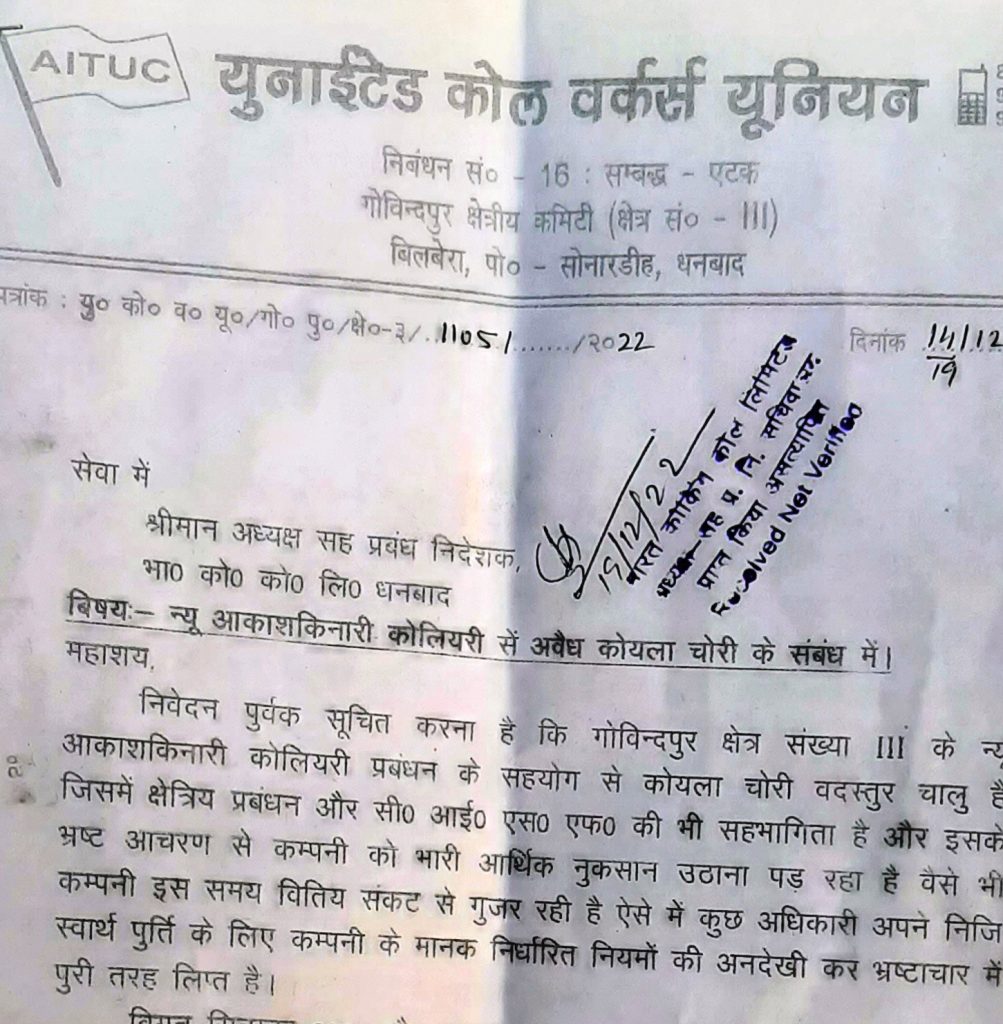 AITUC
युनाईटेड कोल वर्कर्स यूनियन
निबंधन सं० - 16 : सम्बद्ध - एटक
गोविन्दपुर क्षेत्रीय कमिटी (क्षेत्र सं० - III)
बिलबेरा, पो० - सोनारडीह, धनबाद
पत्रांक : यु० को० व० यू०/गो० पु०/क्षे०-३/..11051......./२०22
दिनांक 14/12
19
19/12/22
भारत कोकिंग कोल लिमिटेड
अध्यक्ष-सह प्र. नि. सचिवा
प्राप्त किया असत्यापित
Received Not Verified
सेवा में
श्रीमान अध्यक्ष सह प्रबंध निदेशक,
भा0 को0 को0 लि0 धनबाद
बिषयः- न्यू आकाशकिनारी कोलियरी सें अवैध कोयला चोरी के संबंध में।
महाशय,
निवेदन पुर्वक सूचित करना है कि गोविन्दपुर क्षेत्र संख्या III के न्यू
आकाशकिनारी कोलियरी प्रबंधन के सहयोग से कोयला चोरी वदस्तुर चालु है
जिसमें क्षेत्रिय प्रबंधन और सी0 आई0 एस0 एफ0 की भी सहभागिता है और इसके
भ्रष्ट आचरण से कम्पनी को भारी आर्थिक नुकसान उठाना पड़ रहा है वैसे भी
कम्पनी इस समय वितिय संकट से गुजर रही है ऐसे में कुछ अधिकारी अपने निजि
स्वार्थ पुर्ति के लिए कम्पनी के मानक निर्धारित नियमों की अनदेखी कर भ्रष्टाचार में
पुरी तरह लिप्त है।